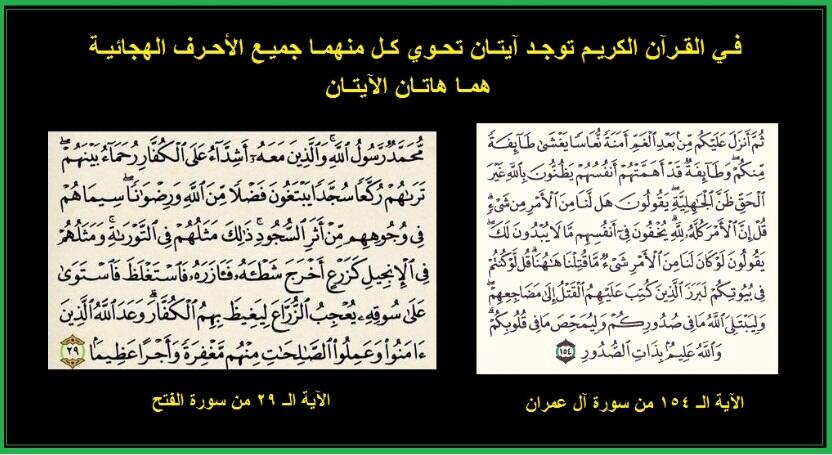 في القرآن الكريم توجد آيتان تحوي كل منهما جميع الأحرف الهجائية
هما هاتان الآيتان
ثُمَّ أَنزَلَ عَلَيْكُم مِّنۢ بَعْدِ ٱلْغَمِّ أَمَنَةً نُّعَاسًا يَغْشَىٰ طَآئِفَةً
مِّنكُمْ ۖ وَطَآئِفَةٌ قَدْ أَهَمَّتْهُمْ أَنفُسُهُمْ يَظُنُّونَ بِٱللَّهِ غَيْرَ
ٱلْحَقِّ ظَنَّ ٱلْجَٰهِلِيَّةِ ۖ يَقُولُونَ هَل لَّنَا مِنَ ٱلْأَمْرِ مِن شَىْءٍ ۗ
قُلْ إِنَّ ٱلْأَمْرَ كُلَّهُۥ لِلَّهِ ۗ يُخْفُونَ فِىٓ أَنفُسِهِم مَّا لَا يُبْدُونَ لَكَ ۖ
يَقُولُونَ لَوْ كَانَ لَنَا مِنَ ٱلْأَمْرِ شَىْءٌ مَّا قُتِلْنَا هَٰهُنَا ۗ قُل لَّوْ كُنتُمْ
فِى بُيُوتِكُمْ لَبَرَزَ ٱلَّذِينَ كُتِبَ عَلَيْهِمُ ٱلْقَتْلُ إِلَىٰ مَضَاجِعِهِمْ ۖ
وَلِيَبْتَلِىَ ٱللَّهُ مَا فِى صُدُورِكُمْ وَلِيُمَحِّصَ مَا فِى قُلُوبِكُمْ ۗ
وَٱللَّهُ عَلِيمٌۢ بِذَاتِ ٱلصُّدُورِ ١٥٤
الآية الـ ١٥٤ من سورة آل عمران
مُّحَمَّدٌ رَّسُولُ ٱللَّهِ ۚ وَٱلَّذِينَ مَعَهُۥٓ أَشِدَّآءُ عَلَى ٱلْكُفَّارِ رُحَمَآءُ بَيْنَهُمْ ۖ
تَرَىٰهُمْ رُكَّعًا سُجَّدًا يَبْتَغُونَ فَضْلًا مِّنَ ٱللَّهِ وَرِضْوَٰنًا ۖ سِيمَاهُمْ
فِى وُجُوهِهِم مِّنْ أَثَرِ ٱلسُّجُودِ ۚ ذَٰلِكَ مَثَلُهُمْ فِى ٱلتَّوْرَىٰةِ ۚ وَمَثَلُهُمْ
فِى ٱلْإِنجِيلِ كَزَرْعٍ أَخْرَجَ شَطْـَٔهُۥ فَـَٔازَرَهُۥ فَٱسْتَغْلَظَ فَٱسْتَوَىٰ
عَلَىٰ سُوقِهِۦ يُعْجِبُ ٱلزُّرَّاعَ لِيَغِيظَ بِهِمُ ٱلْكُفَّارَ ۗ وَعَدَ ٱللَّهُ ٱلَّذِينَ
ءَامَنُوا۟ وَعَمِلُوا۟ ٱلصَّٰلِحَٰتِ مِنْهُم مَّغْفِرَةً وَأَجْرًا عَظِيمًۢا ٢٩
الآية الـ ٢٩ من سورة الفتح